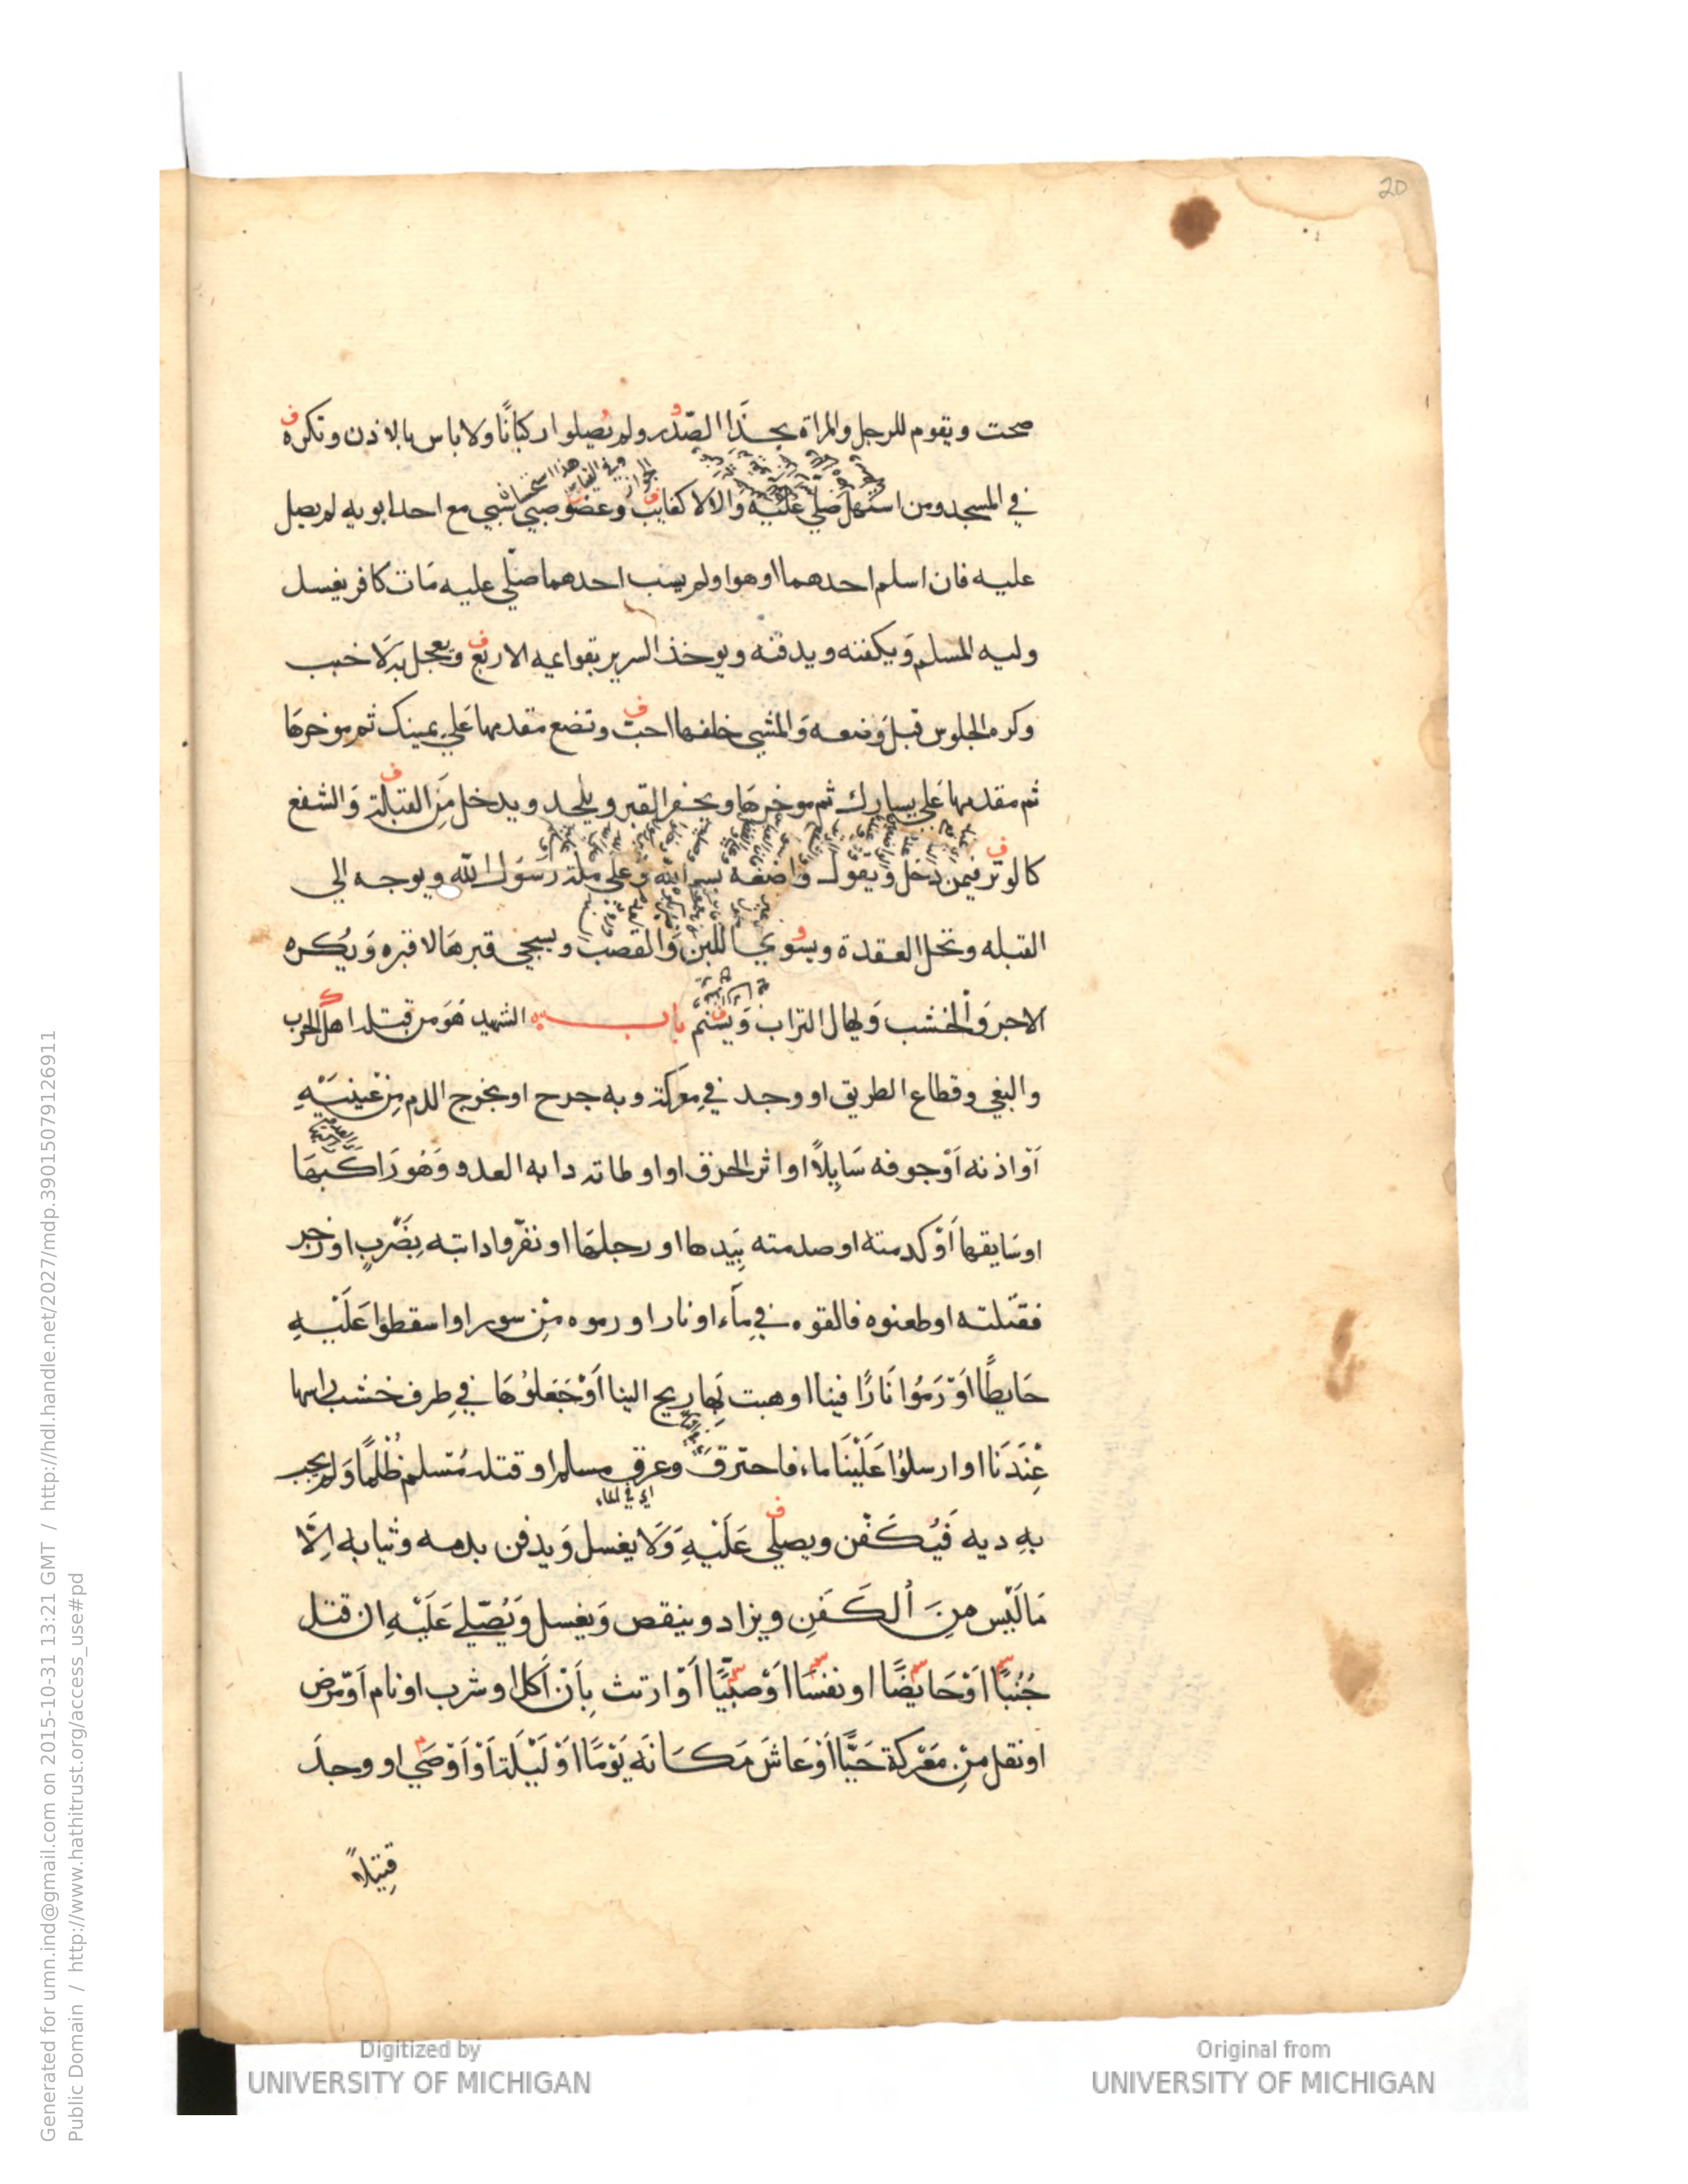 20
صحت ويقوم للرجل والمراة بحذا الصّدر ولم يُصلوا ركبانًا ولا باس بالاذن وتكره
في المسجد ومن استهل صَلّي عَليْه وَالا لا كغايب وعضو صبي سُبي مع احد ابويه لم يصل
عليه فان اسلم احدهما او هو او لم يسب احدهما صَلّي عليه مَات كافر يغسل
وليه المسلم وَيكفنه ويدفنه ويوخذ السرير بقوايمه الاربع ويعجل به لَا خبب
وكره الجلوس قبلَ وَضعه وَالمشي خلفها احبّ وتضع مقدمها عَلي يمينك ثم موخرهَا
ثم مقدمها عَلي يسارك ثم موخرهَا ويحفر القبر ويلحد ويدخل مِنَ القبلة وَالشفع
كالوتر فيمن دخل وَيقول واضعه بسم الله وعلي ملة رَسُول الله ويوجه الي
القبله وتحل العقدة ويسوي اللبن وَالقصب ويسجي قبرهَا لا قبره وَيُكره
الاجر وَالخشب وَيهال التراب وَيسَنَّم باب الشهيد هُوَ من قتله اهل الحرب
والبغي وقطاع الطريق او وجد في مِعركة وبه جرح او يخرج الدم مِنْ عَينَيْهِ
اَوْ اذنه اَوْ جوفه سَايلًا او اثر الحرق او اوطاته دابه العدو وَهُو رَاكبهَا
او سَايقها اَوْ كدمته او صدمته بِيَدها او رجلهَا او نفّروا دابته بِضَرْبٍ او زجر
فقتلته او طعنوه فالقوه في مَاء او نار او رموه مِنْ سور او اسقطوا عَلَيْهِ
حَايطًا اَوْ رَمُوا نَارًا فينا او هبت بِهَا ريح الينا اَوْ جَعَلوُهَا في طِرف خشب راسها
عِنْدَنَا او ارسلوُا عَلَيْنَا ماء فاحترقَ وغرق مسلم او قتله مُسلم ظُلمًا وَلم يجب
اي في الماء
بهِ ديه فَيُكَفن ويصلي عَلَيْهِ وَلَا يغسل وَيدفن بدمه وثيابه اِلّا
مَا لَيْس مِنَ الْكَفَنِ ويزاد وينقص وَيغسل وَيُصَلي عَلَيْهِ ان قتل
جُنُبًا اَوْ حَايضًا او نفسَا اَوْ صبيًّا اَوْ ارتث بِاَنْ اَكل او شرب او نام اَوْ مَرض
او نقل مِنْ مَعْركة حَيًّا اَوْ عَاشَ مَكَانَه يَوْمًا اَوْ لَيْلَة اَوْ اَوْصَي او وجدَ
قتيلاً
Digitized by
UNIVERSITY OF MICHIGAN
Original from
UNIVERSITY OF MICHIGAN
Generated for umn.ind@gmail.com on 2015-10-31 13:21 GMT / http://hdl.handle.net/2027/mdp.39015079126911
Public Domain / http://www.hathitrust.org/access_use#pd